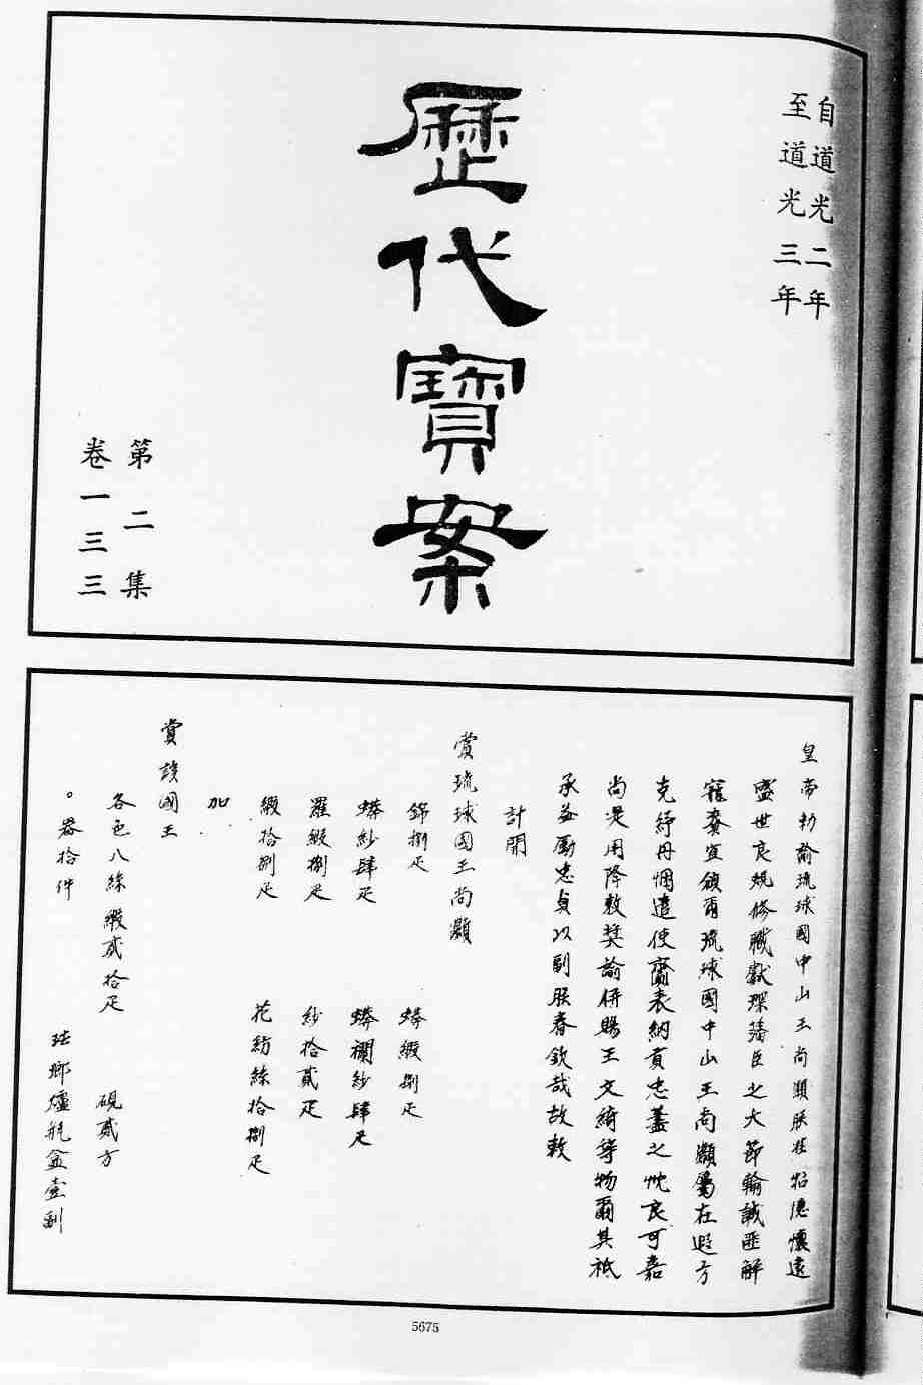 自道光二年
至道光三年
歷代寶案
第二集
卷一三三
皇帝勅諭琉球國中山王尚灝朕惟昭德懷遠
盛世良規修職獻琛藩臣之大節輸誠匪解
寵賚宜頒爾琉球國中山王尚灝屬在遐方
克紓丹悃遣使齎表納貢忠藎之忱良可嘉
尚是用降敕獎諭併賜王文綺等物爾其祇
承益勵忠貞以副朕眷欽哉故敕
計開
賞琉球國王尚灝
錦捌疋 蟒緞捌疋
蟒紗肆疋 蟒襴紗肆疋
羅緞捌疋 紗拾貳疋
緞拾捌疋 花紡絲拾捌疋
加
賞該國王
各色八絲緞貳拾疋 硯貳方
。器拾件 琺瑯爐瓶盒壹副
5675